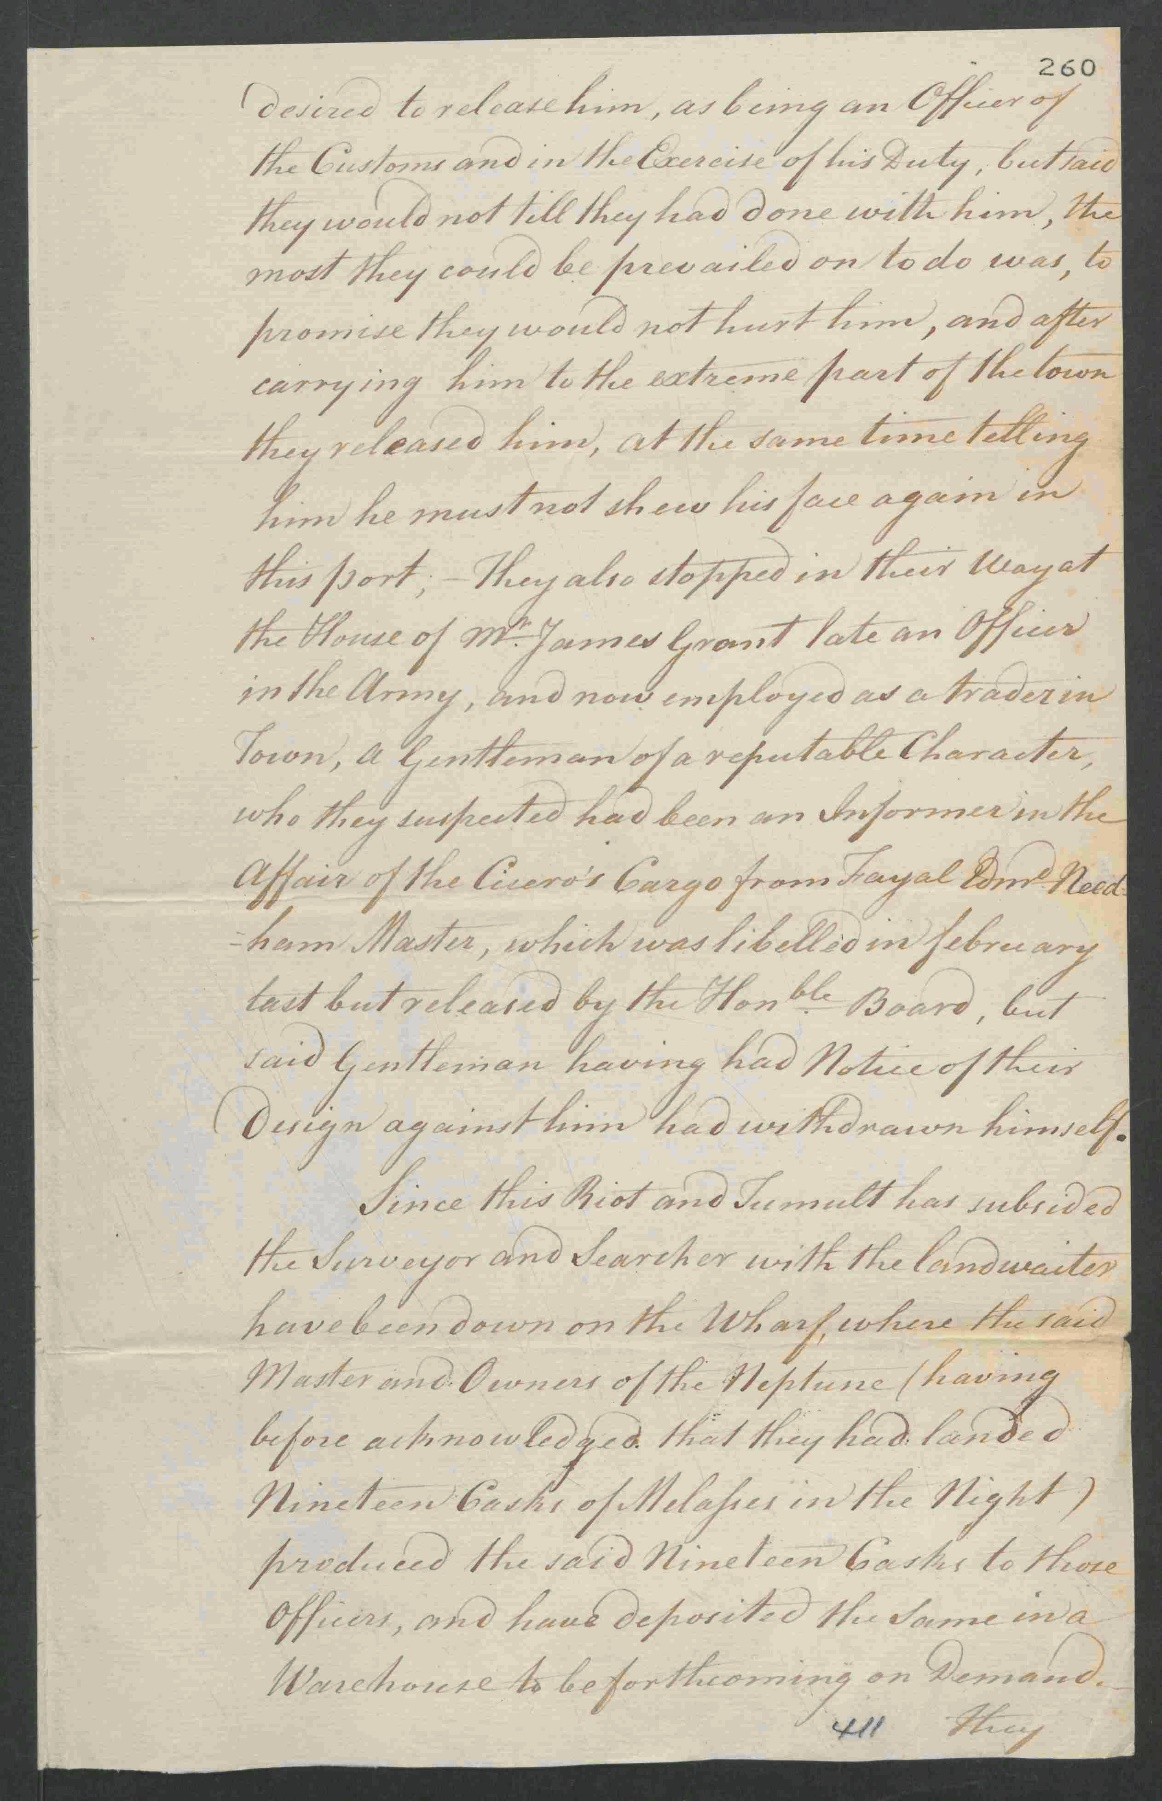 260
desired to release him, as being an Officer of
the Customs and in the Exercise of his Duty, but said
they would not till they had done with him, the
most they could be prevailed on to do was, to
promise they would not hurt him, and after
carrying him to the extreme part of the town
they released him, at the same time telling
him he must not shew his face again in
this port; - They also stopped in their way at
the House of Mr. James Grant late an Officer
in the Army, and now employed as a trader in
Town, a Gentleman of a reputable Character,
who they suspected had been an Informer in the
Affair of the Cicero's Cargo from Fayal Edmd. Need-
=ham Master, which was libelled in february
last but released by the Honble. Board, but
said Gentleman having had Notice of their
Design against him had withdrawn himself.
Since this Riot and Tumult has subsided
the Surveyor and Searcher with the landwaiter
have been down on the Wharf, where the said
Master and Owners of the Neptune (having
before acknowledged that they had landed
Nineteen Casks of Melasses in the Night)
produced the said Nineteen Casks to those
Officers, and have deposited the Same in a
Warehouse to be forthcoming on Demand. -
411 they